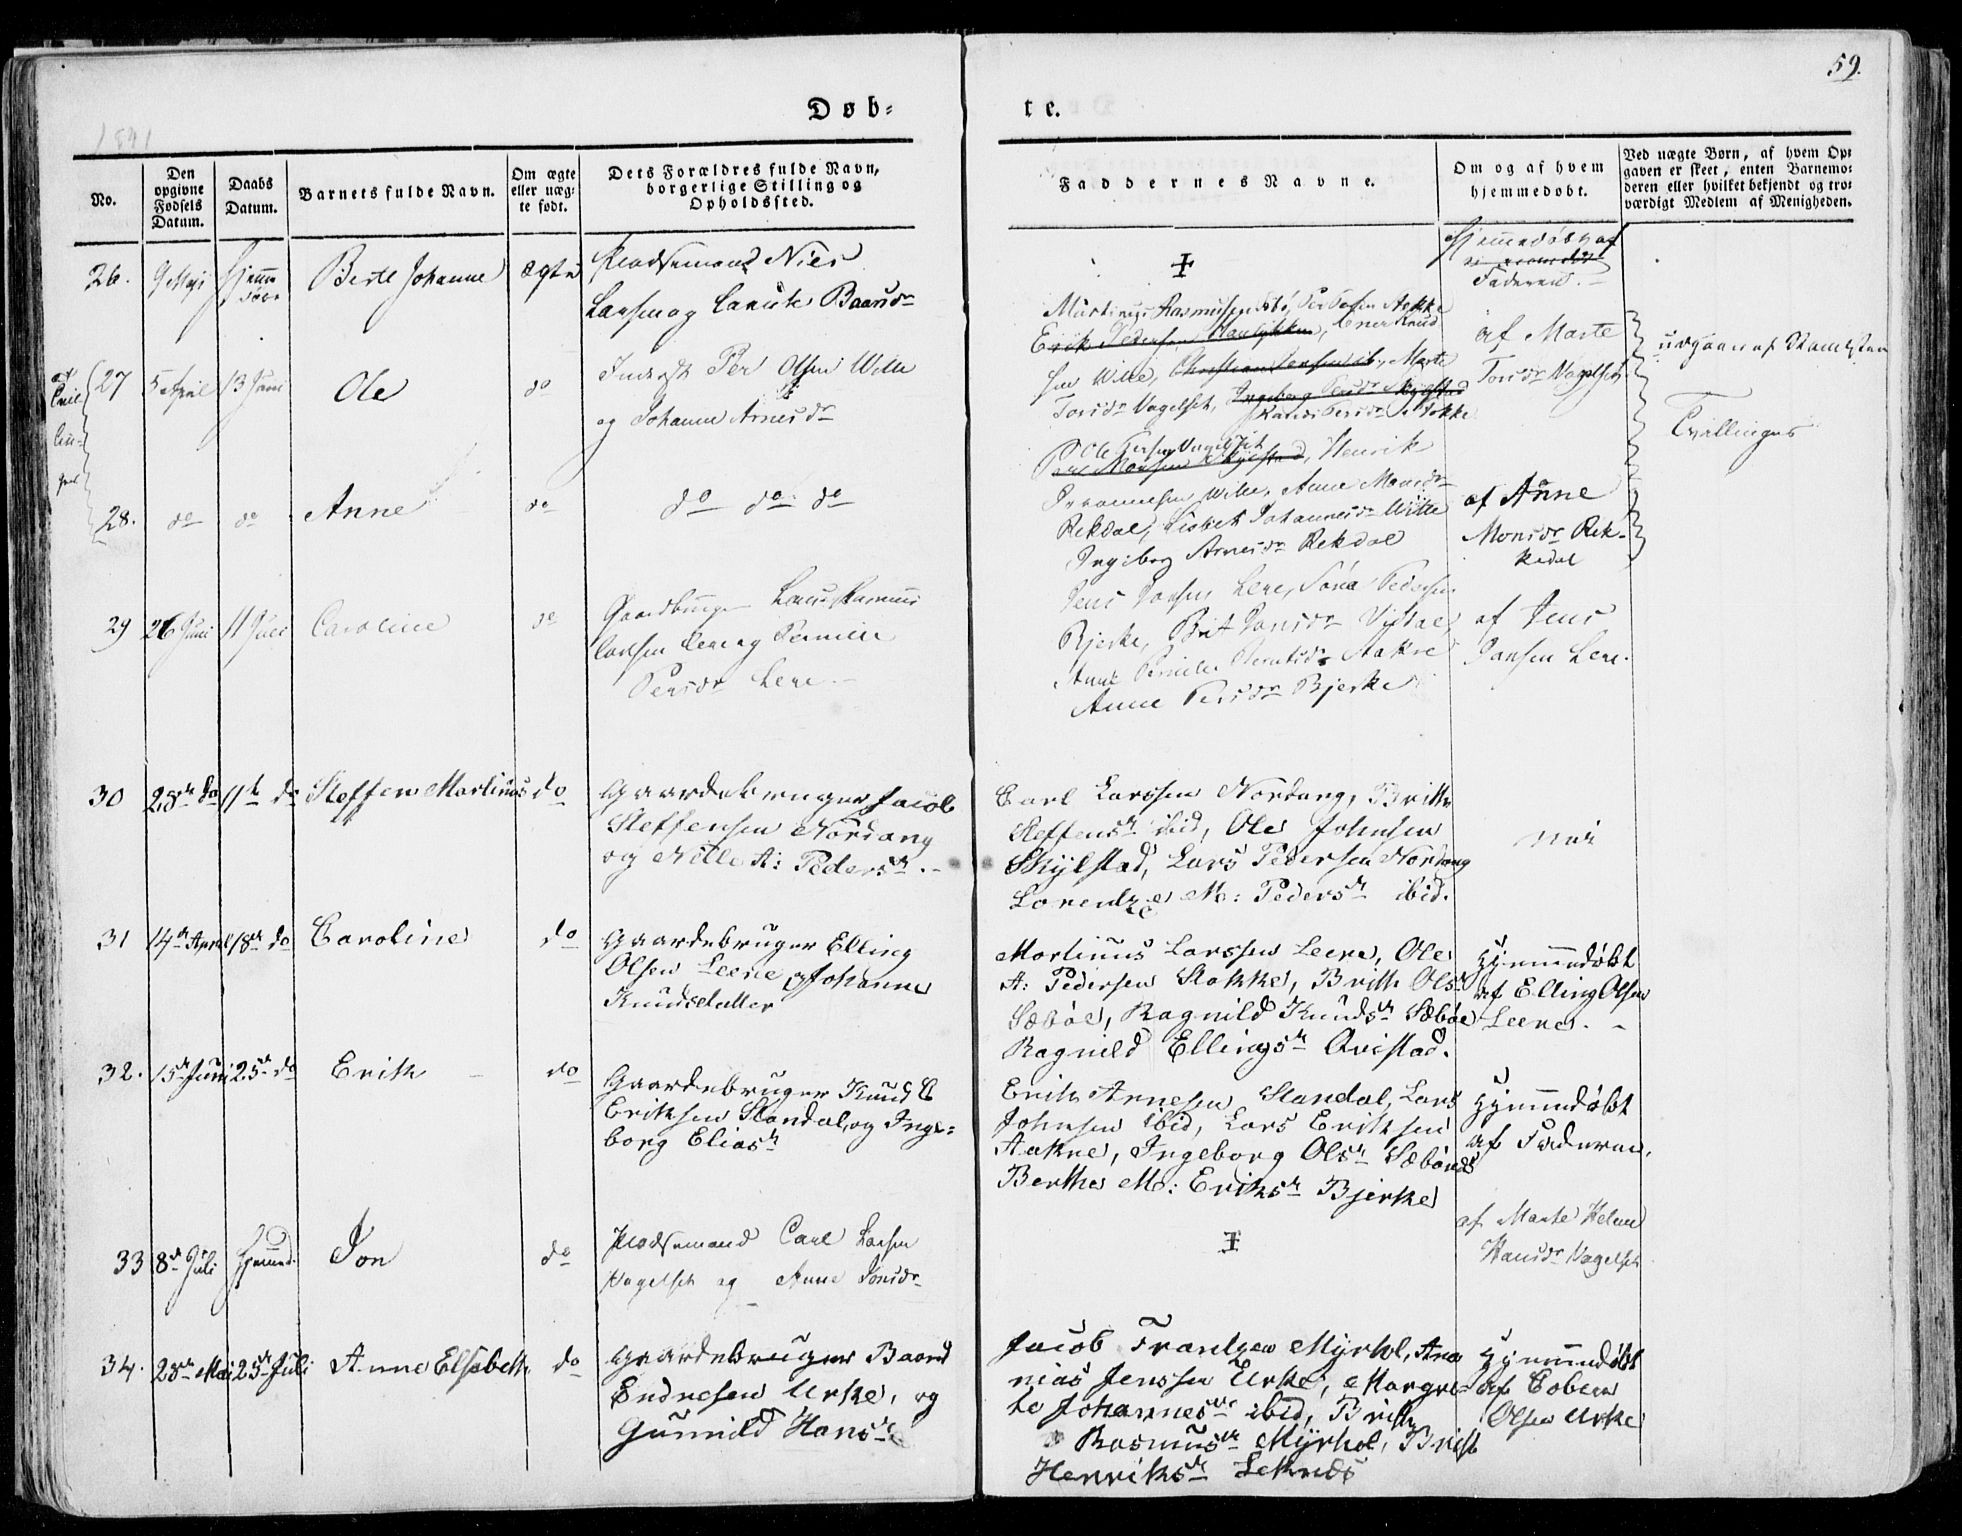 59.
Døb-
te.
1841
No.
Den opgivne Fødsels Datum.
Daabs Datum.
Barnets fulde Navn.
Om ægte eller uæg-te født.
Dets Forældres fulde Navn, borgerlige Stilling og Opholdssted.
Faddernes Navne.
Om og af hvem hjemmedøbt.
Ved uægte Børn, af hvem Op-gaven er skeet, enten Barnemo-deren eller hvilket bekjendt og tro-værdigt Medlem af Menigheden.
26. 9 Maji Hjemme
døbt
Berte Johanne ægte
Pladsemand Nies
Larsen og Baardsdr
‡
Hjemmedøbt af
Faderen.
27 5 April 13 Juni Ole do
Inderst Per Olsen Wille
og Johanne Arnesdr
Martinus Rasmusen Per Stokke
Erik Pedersen Knud
sen Wille, Marte
Torsdr Vagelset, Ingeborg
Randi Persdr Stokke
af Marte
Torsdr Vagelset
Tvillinger
28. do do Anne do
do do do
Ole Vagelset
Henrik
Wille, Anne Monsdr
Rekdal, Lisbet Johannesdr Wille
Ingeborg Arnesdr Rekdal
af Anne
Monsdr Rek-
kedal
29 26 Juni 11 Juli Caroline do
Gaardbruger Rasmus
Larsen Lere og Pernille
Persdr Lere
Jens Jansen Lere, Pedersen
Bjerke, Brit Jonsdr
Anne Aakre
Anne Persdr Bjerke
af Jens
Jansen Lere.
30 25de do 11te do Steffen Martinus do
Gaardebruger Jacob
Steffensen Nordang
og Nille A: Pedersdr.
Carl Larssen Nordang, Brithe
Steffensdr ibid, Ole Johnsen
Skylstad, Lars Pedersen Nordang
Lorentze M: Pedersdr ibid.
Nei
31 14de April 18de do Caroline do
Gaardebruger Elling
Olsen Leere og Johanne
Knudsdatter
Martinus Larssen Leere, Ole
A: Pedersen Stokke, Brith Olsdr
Sæbøe, Ragnild Knudsdr Sæbøe
Ragnild Ellingsdr Qvistad.
Hjemmedøbt
af Elling Olsen
Leere.
32. 15de Juni 25de do Erik do
Gaardebruger Knud E
Eriksen Standal, og Inge-
borg Eliasdr
Erik Arnesen Standal, Lars
Johnsen ibid, Lars Eriksen
Aakre, Ingeborg Olsdr Sæbønes
Berthe M: Eriksdr Bjerke
Hjemmedøbt
af Faderen.
33 8de Juli Hjemmed. Jon do
Pladsemand Carl Larsen
Vagelset og Anne Jonsdr
‡
af Marte Helene
Hansdr Vagelset
34. 28de Mai 25de Juli Anne Elsebeth do
Gaardebruger Baard
Endresen Urke, og
Gunnild Hansdr
Jacob Frantzen Myrhol, Ana
nias Jenssen Urke, Margre-
te Johannesdr ibid, Brith
Rasmusdr Myrhol, Brith
Henriksdr Leknes
Hjemmedøbt
af Esben
Olsen Urke